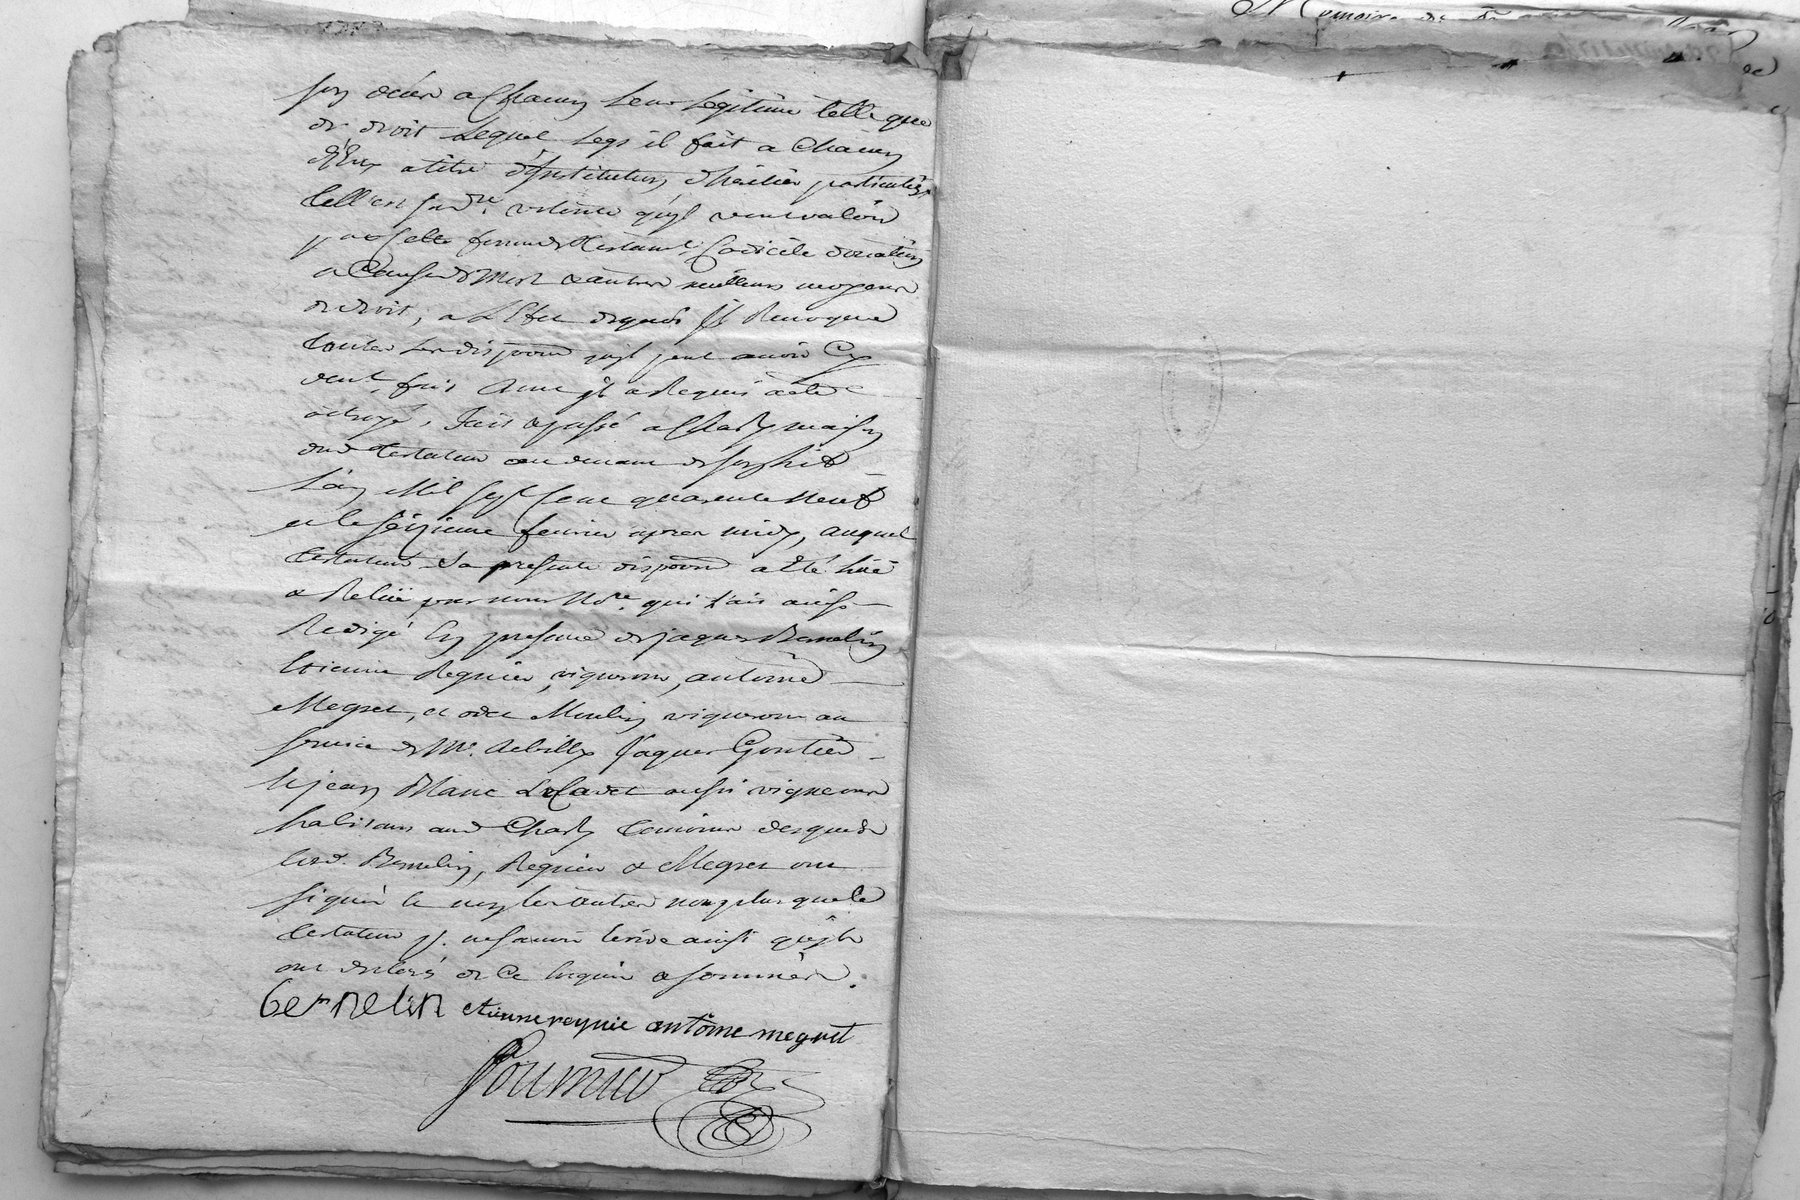 son décés a Chacun leur Legitime telle que
de droit Lequel Legs il fait a Chacun
d'Eux a titre d'Institution d'héritier particulier
telle est sa d.re volonté qu'il veut valoir
par testament, Codicile donation
a Cause de Mort & autres meilleurs moyens
de droit, a L'Effet dequoi Il Revoque
toutes les dispoons qu'il peut avoir Cy
devt. fait dont il a Requis acte
octroyé, fait & passé a Charly maison
dud testateur au devant de son lit
L'an Mil Sept Cent quarente Neuf
et le seizieme fevrier apres midy, auquel
testateur La presente dispoon a Eté luë
& Reluë par nous No.re qui L'ais aussy
Redigé En presence de jaques Bernelin
Etienne Regnier, vignerons, antoine
Megret, et odet Moulin vignerons au
service de Mr. Jaques Gontier
& jean Blanc Cadet aussi vignerons
habitans aud Charly temoins desquels
lesd. Bernelin, Regnier & Megret ont
signé & non les autres non plus que le
testateur p. ne savoir Ecrire ainsi qu'ils
ont declaré de Ce Enquis & sommés.
bernelin etienne reynie antoine megret